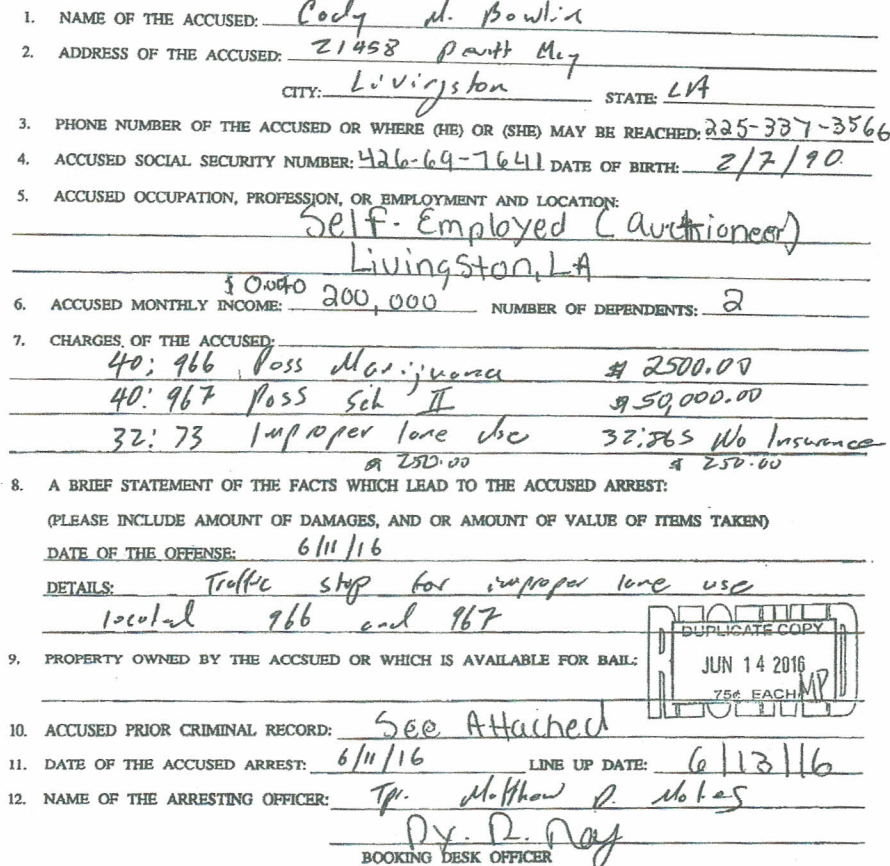 1. NAME OF THE ACCUSED: Cody M. Bowlin
2. ADDRESS OF THE ACCUSED: 21458
CITY: Livingston STATE: LA
3. PHONE NUMBER OF THE ACCUSED OR WHERE (HE) OR (SHE) MAY BE REACHED: 225-337-3566
4. ACCUSED SOCIAL SECURITY NUMBER: 426-69-7641 DATE OF BIRTH: 2/7/90
5. ACCUSED OCCUPATION, PROFESSION, OR EMPLOYMENT AND LOCATION:
Self-Employed (Auctioneer)
Livingston, LA
6. ACCUSED MONTHLY INCOME: 200,000 NUMBER OF DEPENDENTS: 2
7. CHARGES OF THE ACCUSED:
40:966 Poss Marijuana $ 2500.00
40:967 Poss Sch II $ 50,000.00
32:73 Improper lane use 32:865 No Insurance
$ 250.00 $ 250.00
8. A BRIEF STATEMENT OF THE FACTS WHICH LEAD TO THE ACCUSED ARREST:
(PLEASE INCLUDE AMOUNT OF DAMAGES, AND OR AMOUNT OF VALUE OF ITEMS TAKEN)
DATE OF THE OFFENSE: 6/11/16
DETAILS: Traffic stop for improper lane use
located 966 and 967
DUPLICATE COPY
9. PROPERTY OWNED BY THE ACCSUED OR WHICH IS AVAILABLE FOR BAIL:
JUN 14 2016
75¢ EACH MP
10. ACCUSED PRIOR CRIMINAL RECORD: See Attached
11. DATE OF THE ACCUSED ARREST: 6/11/16 LINE UP DATE: 6/13/16
12. NAME OF THE ARRESTING OFFICER: Tpr. Matthew D. Notes
Dy. D. Ray
BOOKING DESK OFFICER